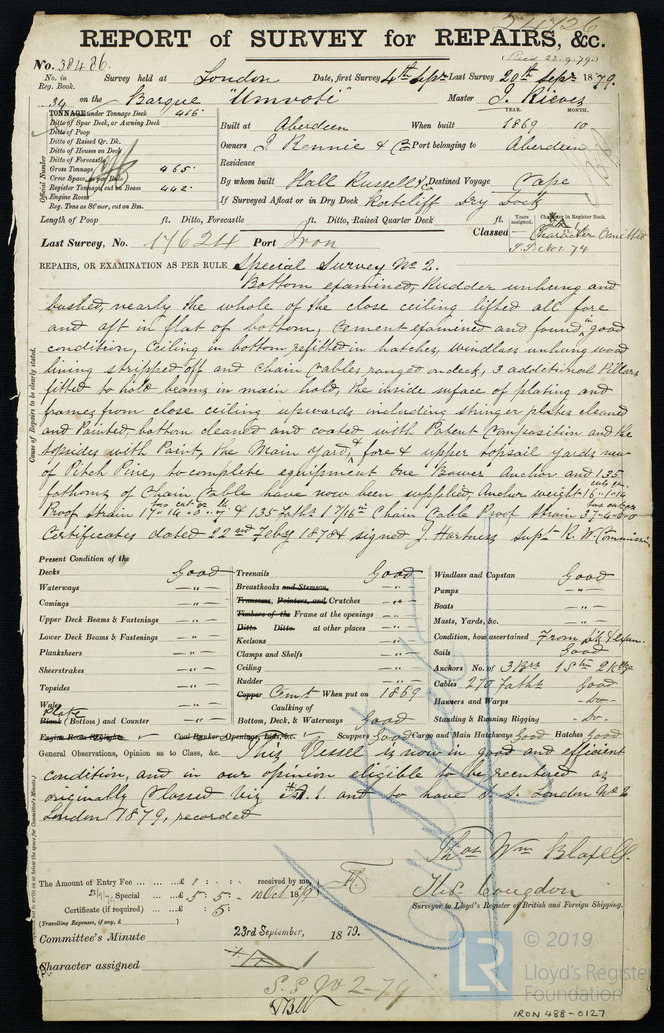 24726
REPORT of SURVEY for REPAIRS, &c.
(Recd 23.9.79.)
No. 38486.
No. in Reg. Book. Survey held at London Date, first Survey 4th Sepr Last Survey 20th Sepr 1879.
34 on the Barque "Umvoti" Master J. Rieves
TONNAGE under Tonnage Deck 416
Ditto of Spar Deck, or Awning Deck
Ditto of Poop
Ditto of Raised Qr. Dk.
Ditto of Houses on Deck
Ditto of Forecastle
Gross Tonnage 465
Crew Space, as per Rule
Register Tonnage, cut on Beam 442
Engine Room
Reg. Tons as St'mer, cut on Bm.
Official Number
YEAR. MONTH.
Built at Aberdeen When built 1869 10
Owners J Rennie & Co Port belonging to Aberdeen
Residence
By whom built Hall Russell & Co Destined Voyage Cape
If Surveyed Afloat or in Dry Dock Ratcliff Dry Dock
Length of Poop ft. Ditto, Forecastle ft. Ditto, Raised Quarter Deck ft.
Years assigned. Character in Register Book.
Classed Character Omitted
Last Survey, No. 17624 Port Iron
REPAIRS, OR EXAMINATION AS PER RULE Special Survey No 2.
Bottom examined, Rudder unhung and
bushed, nearly the whole of the close ceiling lifted all fore
and aft in flat of bottom, Cement examined and found in good
condition, Ceiling in bottom refitted in hatches, windlass unhung wood
lining stripped off and Chain Cables ranged on deck, 3 additional Pillars
fitted to hold beams in main hold, the inside suface of plating and
frames from close ceiling upwards including stringer plates cleaned
and Painted bottom cleaned and coated with Patent Composition and the
topsides with Paint, the Main Yard, & fore & upper topsail yards new
of Pitch Pine, to complete equipment One Bower Anchor and 135
fathoms of Chain Cable have now been supplied, Anchor weight 16.1.14
Proof strain 17.14.0.7 & 135 Faths 1 7/16 in Chain Cable Proof Strain 37-4-0-0
Certificates dated 22nd Feby 1878 & signed J. Hartness Supt R. W. Commissn
Cause of Repairs to be clearly stated.
Present Condition of the
Decks Good
Waterways — " —
Comings — " —
Upper Deck Beams & Fastenings — " —
Lower Deck Beams & Fastenings — " —
Planksheers — " —
Sheerstrakes — " —
Topsides — " —
Wales
Plate
Plank (Bottom) and Counter — " —
Engine Room Skylights
Treenails Good
Breasthooks and Stemson — " —
Transoms, Pointers, and Crutches — " —
Timbers of the Frame at the openings — " —
Ditto Ditto at other places — " —
Keelsons — " —
Clamps and Shelfs — " —
Ceiling — " —
Rudder — " —
Copper Cemt When put on 1869
Caulking of
Bottom, Deck, & Waterways Good
Coal Bunker, Openings, Lids, &c. Scuppers Good Cargo and Main Hatchways Good Hatches Good
Windlass and Capstan Good
Pumps — " —
Boats — " —
Masts, Yards, &c. — " —
Condition, how ascertained
Sails Good
Anchors No. of 3 Brs 1 Stm 2 Kdgs
Cables 270 Faths Good
Hawsers and Warps — Do —
Standing & Running Rigging — Do —
General Observations, Opinion as to Class, &c. This Vessel is now in good and efficient
condition, and in our opinion eligible to be recentered as
originally Classed Viz A.1 and to have S.S. London No 2
London 1879, recorded
Thos Wm Blaxell
Thos Congdon
Surveyor to Lloyd's Register of British and Foreign Shipping.
The Amount of Entry Fee ... £ : : received by me,
Special ... £ 5 : 5 : 10 Oct 1879
Certificate (if required) ... : 5 :
(Travelling Expenses, if any, £ )
Committee's Minute 23rd September, 1879.
Character assigned A 1
S.S. No 2-79
© 2019
LR Lloyd's Register Foundation
IRON 488-0127